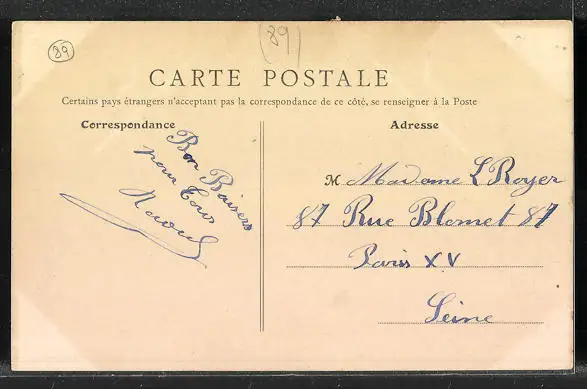 89
89
CARTE POSTALE
Certains pays étrangers n'acceptant pas la correspondance de ce côté, se renseigner à la Poste
Correspondance
Bon Baisers
pour Tous
Raoul
Adresse
M Madame L Royer
87 Rue Blomet 87
Paris XV
Seine